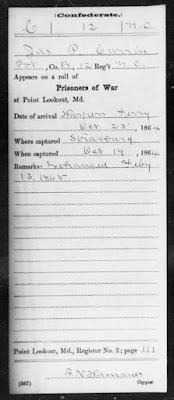 (Confederate.)
C 12 N.C.
Jas P Currin
Pvt, Co. B, 12 Reg't N.C.
Appears on a roll of
Prisoners of War
at Point Lookout, Md.
Date of arrival Harpers Ferry
Oct 25, 1864
Where captured Strasburg
When captured Oct 19, 1864
Remarks: Exchanged Feby
13, 1865
Point Lookout, Md., Register No. 2; page 111
(567)
Copyist